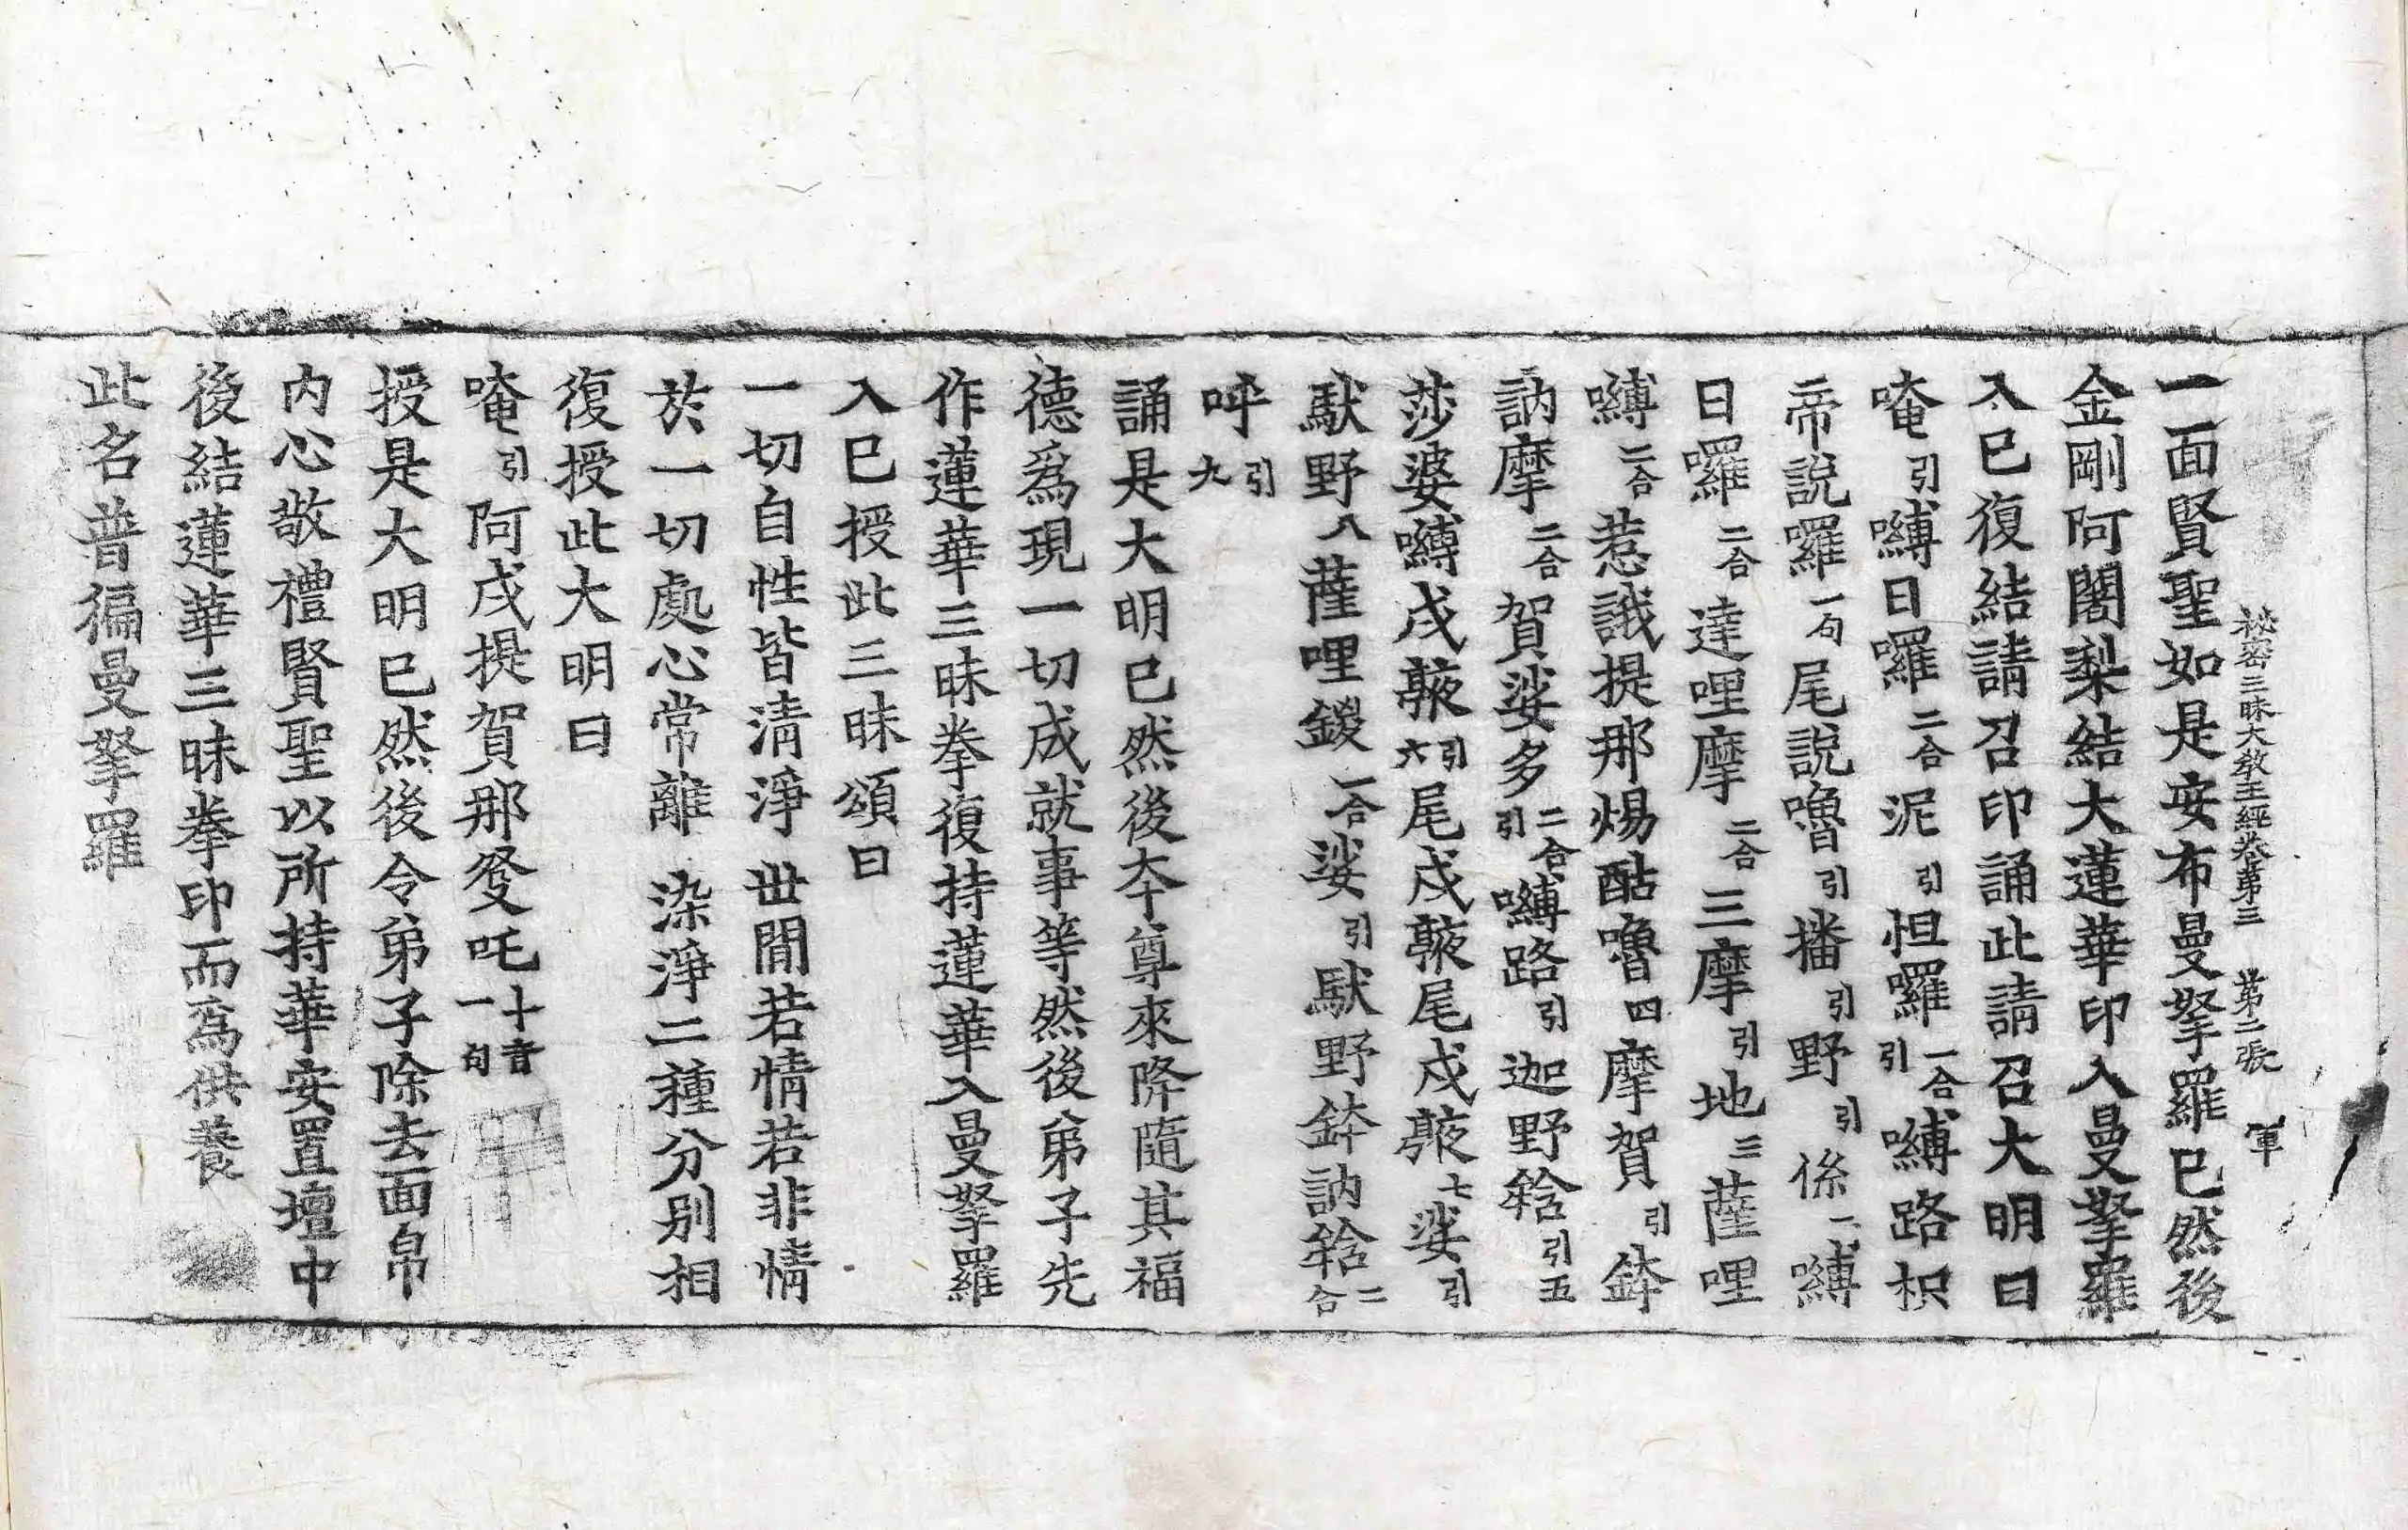 秘密三昧大教王經卷第三 第二張 軍
一一面賢聖如是安布曼拏羅已然後
金剛阿闍梨結大蓮華印入曼拏羅
入已復結請召印誦此請召大明曰
唵引嚩日囉二合泥引怛囉二合引嚩路枳
帝說囉一句尾說嚕引播引野引係二嚩
日囉二合達哩摩二合三摩引地三薩哩
嚩二合惹誐提那煬酤嚕四摩賀引鉢
訥摩二合賀娑多二合引嚩路引迦野𤚥引五
莎婆嚩戍𠆙引六尾戍𠆙尾戍𠆙七娑引
馱野八薩哩鑁二合娑引馱野鉢訥𤚥二合
吽引九
誦是大明已然後本尊來降隨其福
德爲現一切成就事等然後弟子先
作蓮華三昧拳復持蓮華入曼拏羅
入已授此三昧頌曰
一切自性皆清淨 世間若情若非情
於一切處心常離 染淨二種分別相
復授此大明曰
唵引阿戍提賀那癹吒半音一句
授是大明已然後令弟子除去面帛
内心敬禮賢聖以所持華安置壇中
後結蓮華三昧拳印而爲供養
此名普徧曼拏羅